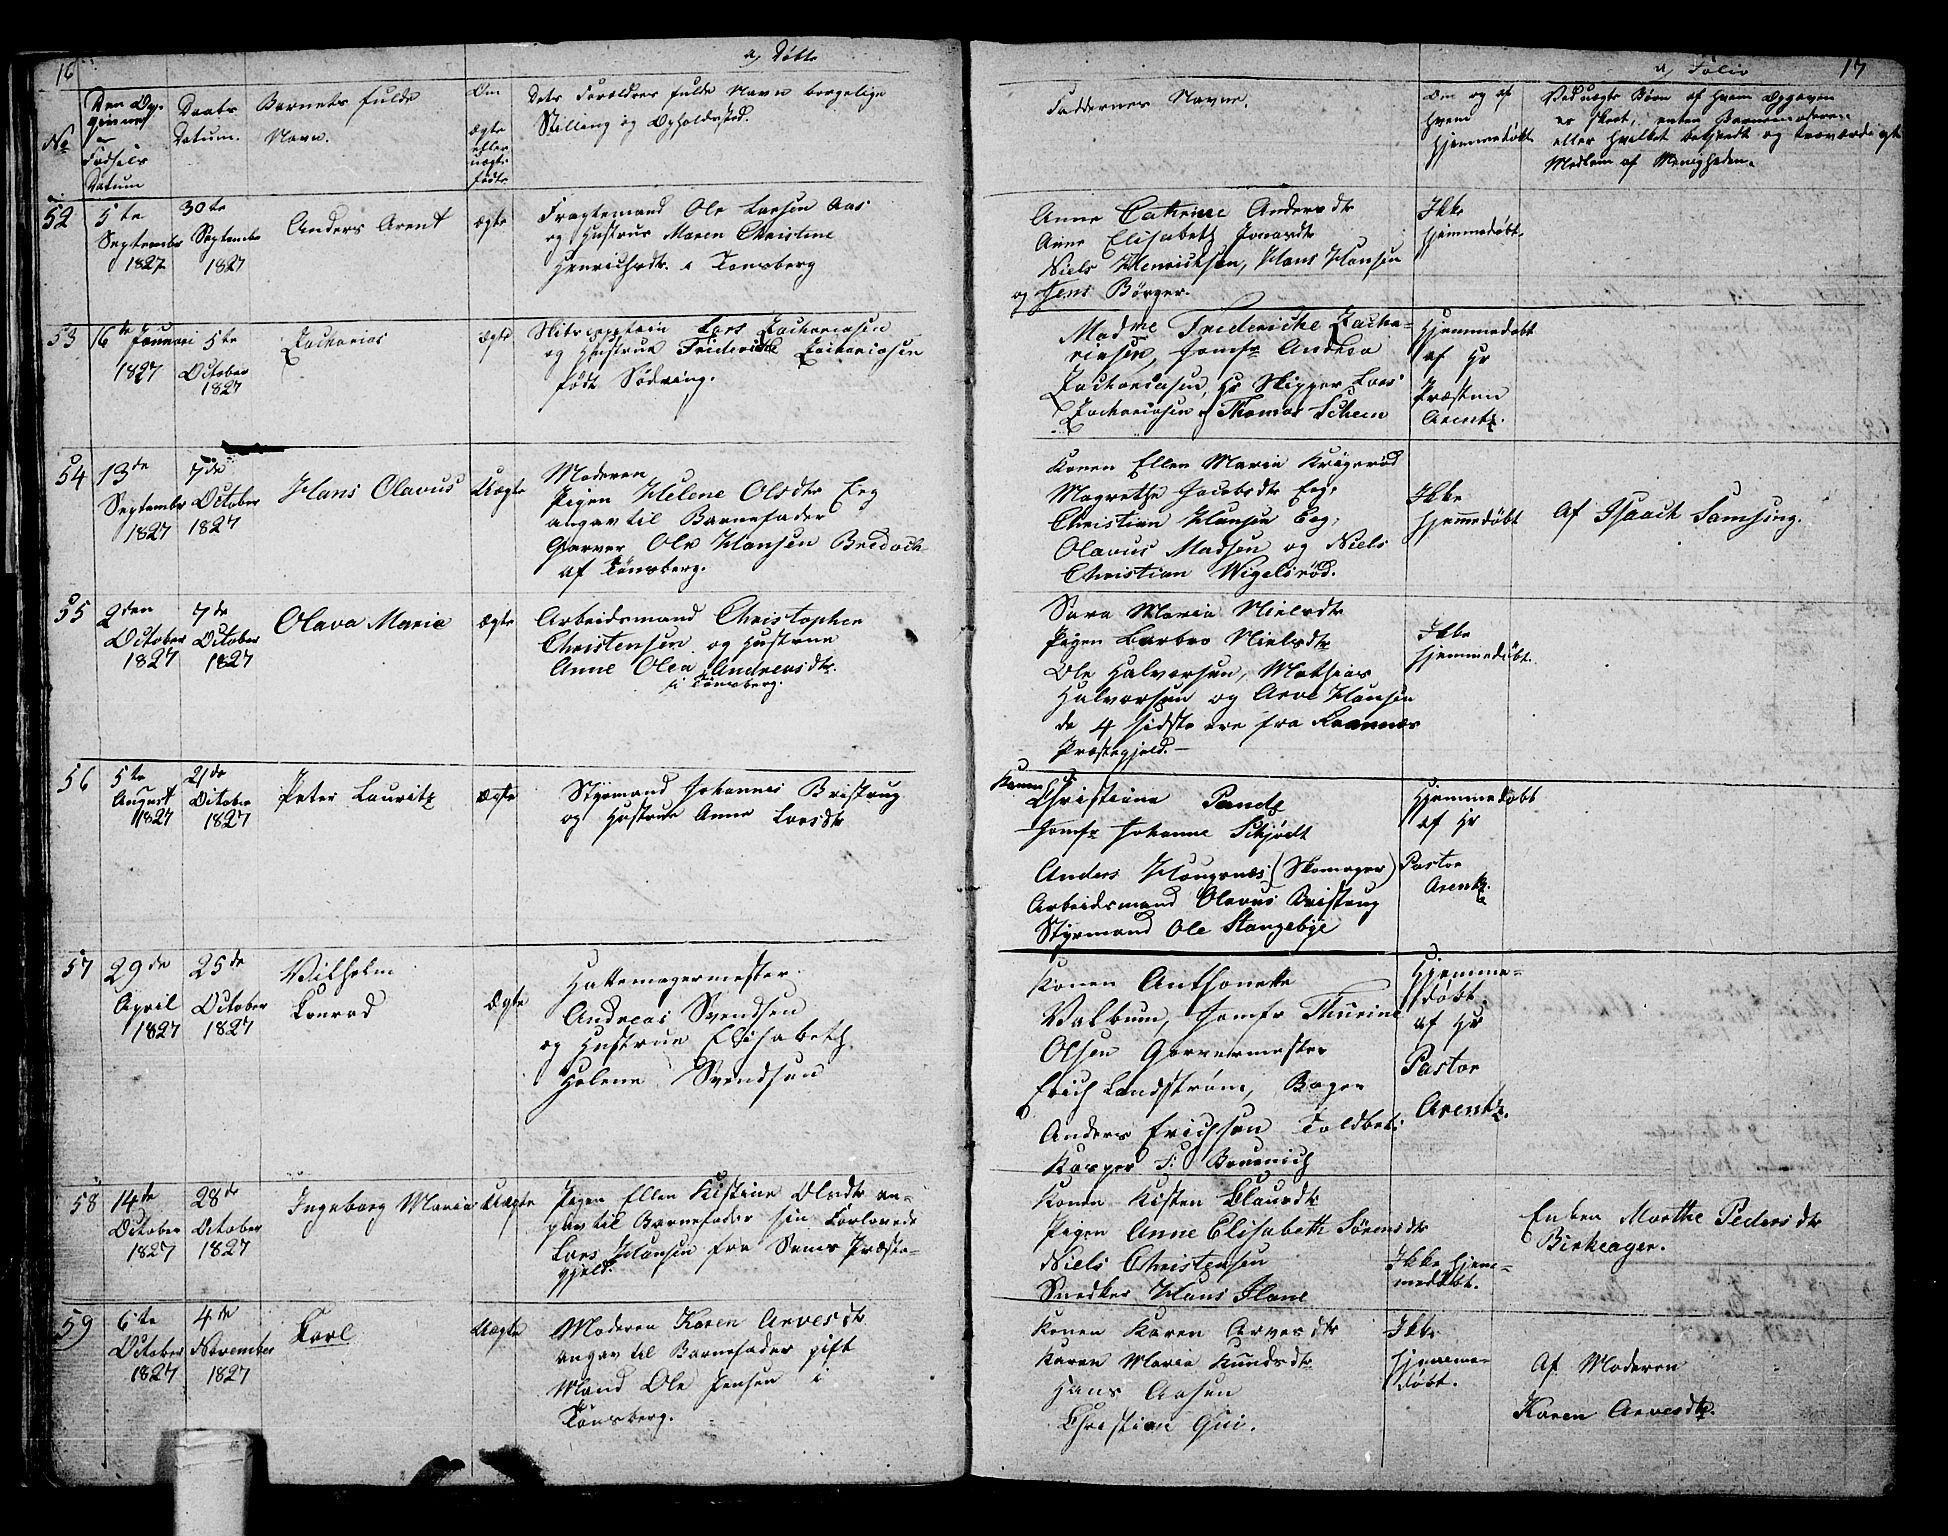 16
a, Døbte
No
Den Op-
givne
Fødsels
Datum
Daabs
Datum.
Barnets fulde
Navn.
Om
ægte
eller
uægte
født
Dets Forældres fulde Navn borgelige
Stilling og Opholdssted.
52
5te
September
1827
30te
September
1827
Anders Arent
ægte
Fragtemand Ole Larsen Aas
og Hustrue Maren Christine
Henrichsdtr. i Tønsberg
53
16de Januari
1827
5te
October
1827
Zacharias
Ægte
Skibscapptein Lars Zachariasen
og Hustrue Friderikke Zachariasen
født Sødring.
54
13de
September
1827
7de
October
1827
Hans Olavus
Uægte
Moderen
Pigen Helene Olsdtr Eeg
angav til Barnefader
Garver Ole Hansen Bredoch
af Tønsberg.
55
2den
October
1827
7de
October
1827
Olava Marie
ægte
Arbeidsmand Christopher
Christensen og Hustrue
Anne Olea Andreasdtr.
i Tønsberg.
56
5te
August
1827
21de
October
1827
Peter Lauritz
ægte
Styrmand Johannes Bristrug
og Hustrue Anne Larsdtr
57
29de
April
1827
25de
October
1827
Vilhelm
Conrad
Ægte
Hattemagermester
Andreas Svendsen
og Hustrue Elisabeth
Helene Svendsen
58
14de
October
1827
28de
October
1827
Ingeborg Maria
Uægte
Pigen Ellen Kistine Olsdtr an-
gav til Barnefader sin Forlovede
Lars Hansen fra Sems Præste-
gjeld.
59
6te
October
1827
4de
November
1827
Carl
Uægte
Moderen Karen Arvesdtr
angav til Barnefader gift
Mand Ole Jensen i
Tønsberg.
a, Folio
17
Faddernes Navne.
Om og af
hvem
hjemmedøbt
Ved uægte Børn af hvem Opgaven
er skeet, enten Barnemoderen
eller hvilket bekjendt og troværdigt
Medlem af Menigheden.
Anne Cathrine Andersdtr
Anne Elisabeth
Niels Henricksen, Hans Hansen
og Jens Børger.
Ikke
hjemmedøbt.
Madme Friderichke Zacha-
riasen, Jomfr Andrea
Zachariasen, Hr Skipper Lars
Zachariasen, Thomas Scheen
Hjemmedøbt
af Hr
Præsten
Arentz.
Konen Ellen Maria Krigerød
Magrethe Jacobsdtr Eeg,
Christian Hansen Eeg,
Olavus Madsen og Niels
Christian Wigelsrød.
Ikke
hjemmedøbt
Af Isaach Samsing.
Sara Maria Nielsdtr
Pigen Barbro Nielsdtr
Ole Halvorsen, Mathias
Halvorsen og Arve Hansen
de 4 sidste ere fra Ramnæs
Præstegjeld.
Ikke
hjemmedøbt.
Konen Christine
Jomfr Johanne Schjødt
Anders Haugenæs (Skomager)
Arbeidsmand Olavus Bristrug
Styrmand Ole Stangebye
Hjemmedøbt
af Hr
Pastor
Arentz.
Konen Anthonette
Valbum, Jomfr Thurine
Olsen Garvermester
Erich Landstrøm, Bager
Anders Erichsen Toldbet:
Kasper F:
Hjemme-
døbt
af Hr
Pastor
Arentz.
Konen Kisten Clausdtr
Pigen Anne Elisabeth Sørensdtr
Niels Christensen
Snedker Hans Flane
Ikke hjem-
medøbt.
Enken Marthe Pedersdtr
Birkeager.
Konen Karen Arvesdtr
Karen Maria Knudsdtr
Hans Aasen
Christian Gui.
Ikke
hjemme-
døbt.
Af Moderen
Karen Arvesdtr.